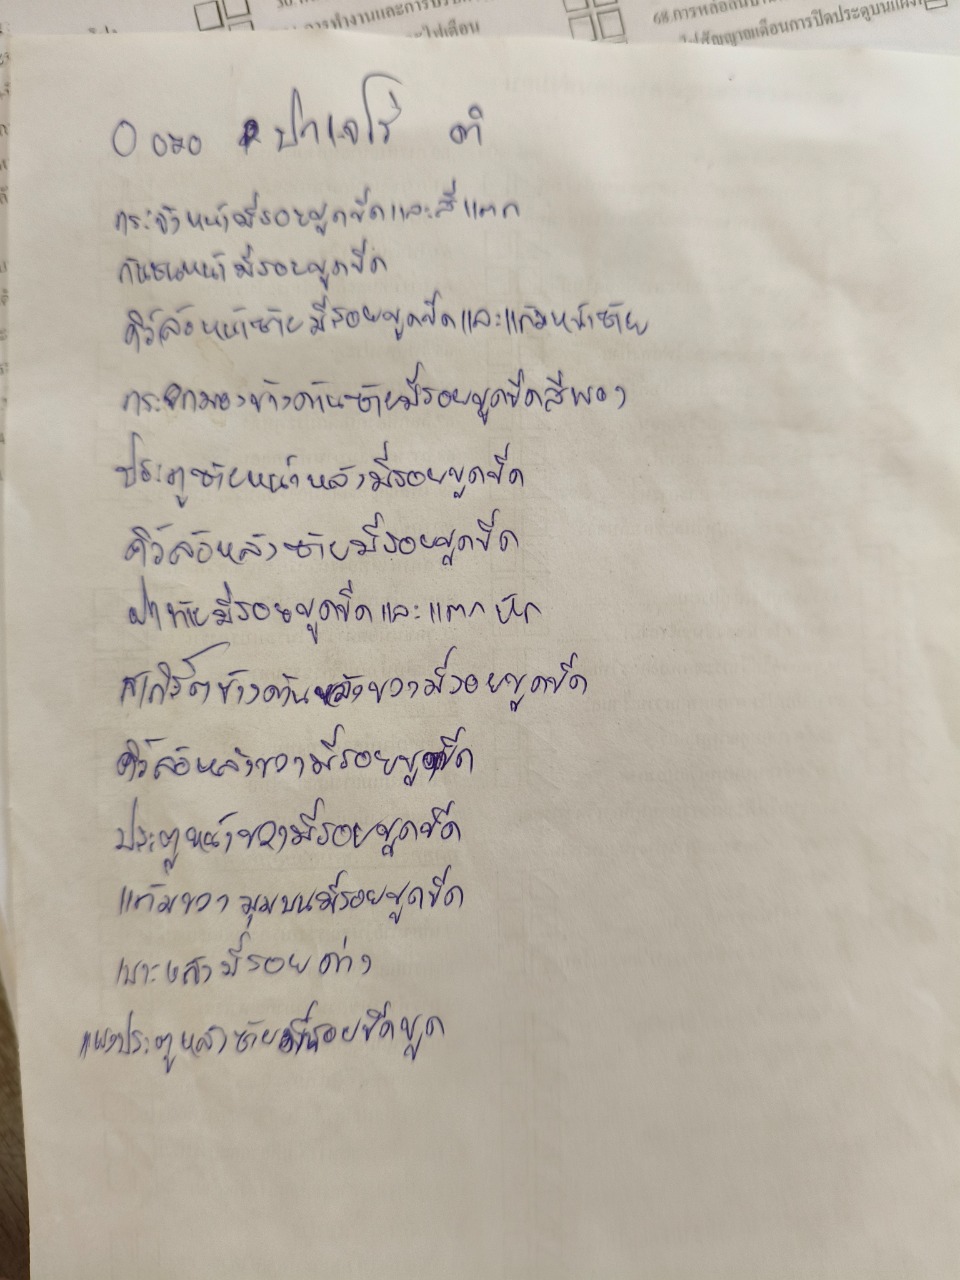 68.การหล่อลื่น
การทำงานและการปรับ
ไฟสัญญาณเตือนการปิดประตูบนแผง
ไฟเตือน
ปาเจโร่ ดำ
กระจังหน้ามีรอยขูดขีดและสีแตก
กันชนหน้ามีรอยขูดขีด
คิ้วล้อหน้าซ้ายมีรอยขูดขีดและแก้มหน้าซ้าย
กระจกมองข้างด้านซ้ายมีรอยขูดขีดสีพอง
ประตูซ้ายหน้าหลังมีรอยขูดขีด
คิ้วล้อหลังซ้ายมีรอยขูดขีด
ฝาท้ายมีรอยขูดขีดและแตกหัก
สเกิร์ตข้างด้านหลังขวามีรอยขูดขีด
คิ้วล้อหลังขวามีรอยขูดขีด
ประตูหน้าขวามีรอยขูดขีด
แก้มขวามุมบนมีรอยขูดขีด
เบาะหลังมีรอยด่าง
แผงประตูหลังซ้ายมีรอยขีดขูด